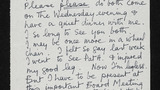 Please please do both come
on the Wednesday evening &
have a quiet dinner with me.
I so long to see you both
I may be once more on a wheel
chair. I felt so gay last week
I went to See Pat &
my good leg so I'm lame
but I have to be present at
this important Board Meeting